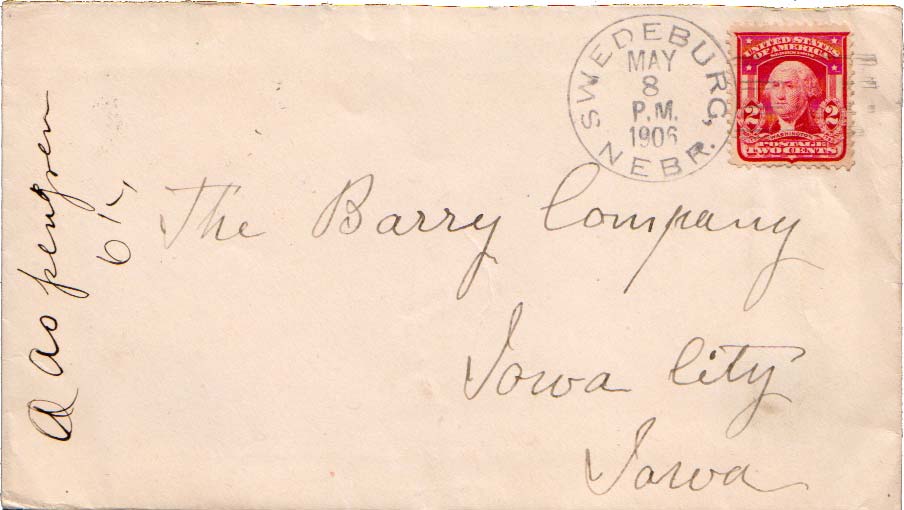 SWEDEBURG, NEBR.
MAY
8
P.M.
1906
UNITED STATES
OF AMERICA
2 2
WASHINGTON
POSTAGE
TWO CENTS
The Barry Company
Iowa City
Iowa